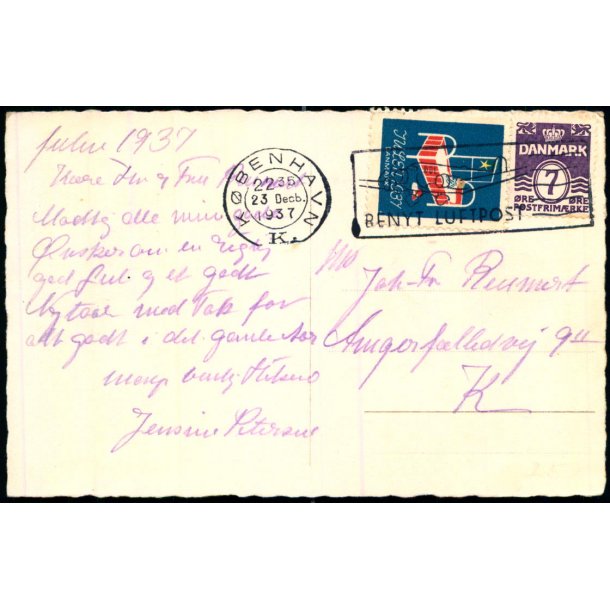 Julen 1937
Kære Hr & Fru Reumert
Modtag alle mine gode
Ønsker om en rigtig
god Jul og et godt
Nytaar med Tak for
alt godt i det gamle Aar
mange venlig Hilsen
Jensine Petersen
KØBENHAVN
22 35
23 Decb.
1937
K.
JULEN 1937
DANMARK
BENYT LUFTPOST
DANMARK
7
ØRE ØRE
POSTFRIMÆRKE
Joh. Fr Reumert
Amagerfælledvej 9
K